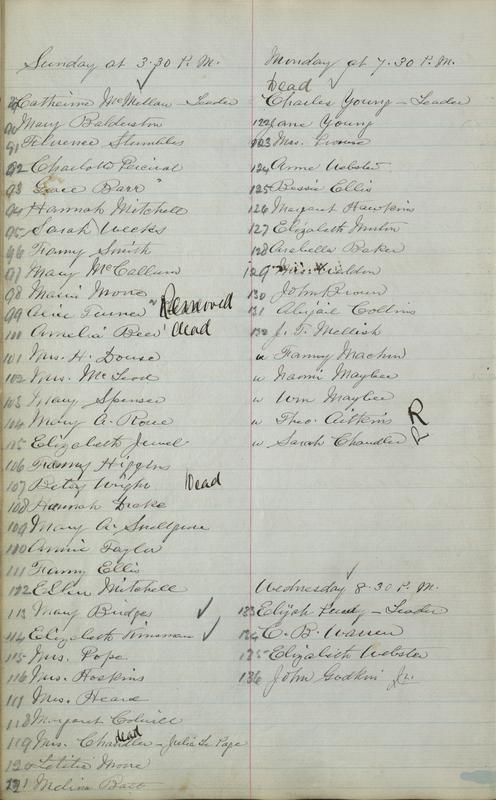 Sunday at 3.30 P.M.
Catherine McMillan - Leader
90 Mary Balderston
91 Florence Stumbles
92 Charlotte Percival
93 Grace Barr "
94 Hannah Mitchell
95 Sarah Weeks
96 Fanny Smith
97 Mary McCallum
98 Maria Moore
99 Alice Turner " Removed
100 Amelia Beer dead
101 Mrs. H. Douse
102 Mrs. McLeod
103 Mary Spenser
104 Mary A. Rowe
105 Elizabeth Jewel
106 Fanny Higgins
107 Betsy Wright Dead
108 Hannah Drake
109 Mary A. Snellgrove
110 Annie Taylor
111 Fanny Ellis
112 Ellen Mitchell
113 Mary Bridges ✓
114 Elizabeth Kinsman ✓
115 Mrs. Pope
116 Mrs. Hoskins
117 Mrs. Heard
118 Margaret Colwill
119 Mrs. Chandler - Julia Le Page
dead
120 Letitia Moore
121 Melina
Monday at 7.30 P.M.
Dead ✓
Charles Young - Leader
122 Jane Young
123 Mrs.
124 Anne Webster
125 Bessie Ellis
126 Margaret Hawkins
127 Elizabeth
128 Arabella Baker
129
130 John Brown
131 Abigail Collins
132 J. T. Mellish
w Fanny Machin
w Naomi Maybee
w Wm Maybee
w Theo. Aitkins
w Sarah Chandler
Wednesday 8.30 P.M.
133 Elijah - Leader
134 C. B. Warren
135 Elizabeth Webster
136 John Godkin Jr.